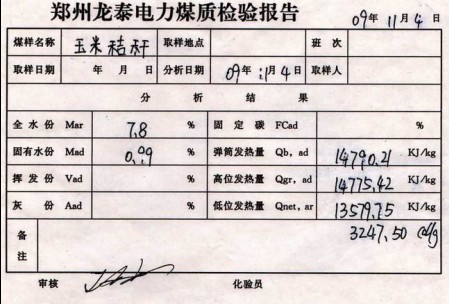 郑州龙泰电力煤质检验报告 09年11月4日
煤样名称 玉米秸秆 取样地点 班次
取样日期 年 月 日 分析日期 09年11月4日 取样人
分析结果
全水份 Mar 7.8 % 固定碳 FCad %
固有水份 Mad 0.99 % 弹筒发热量 Qb,ad 14790.21 KJ/kg
挥发份 Vad % 高位发热量 Qgr,ad 14775.42 KJ/kg
灰份 Aad % 低位发热量 Qnet,ar 13579.75 KJ/kg
备注 3247.50 cal/g
审核 化验员